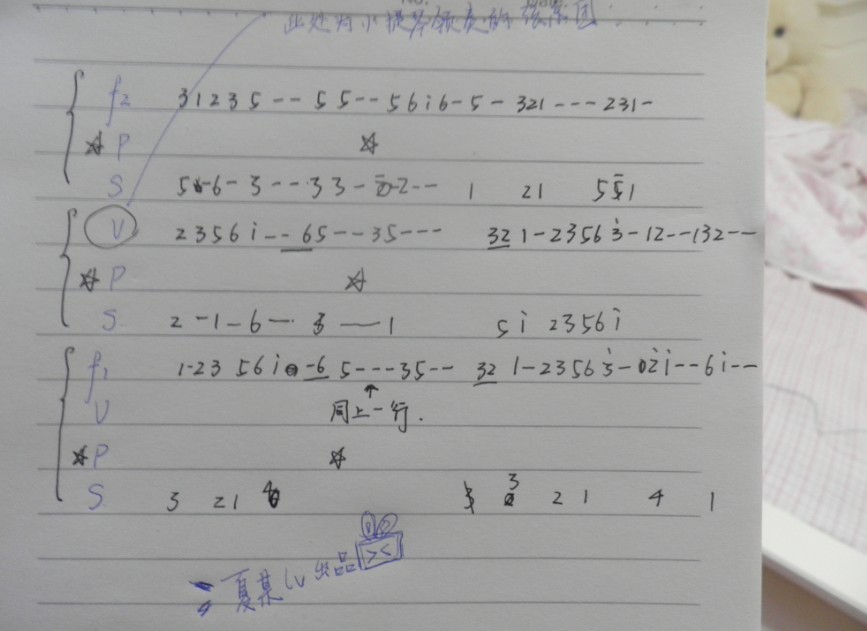 此处为小提琴领奏的弦乐团
f2 31235--55--56i6-5-321---231-
☆P ☆
S 5-6-3---33--2-- 1 21 551
V 2356i--65---35--- 321-23563-12--132--
☆P ☆
S 2-1-6--3—1 5i 2356i
f1 1-23 56i-65---35-- 321-23563-02i--6i--
V 同上一行.
☆P ☆
S 3 21 4 3 21 4 1
夏某lv出品 ><